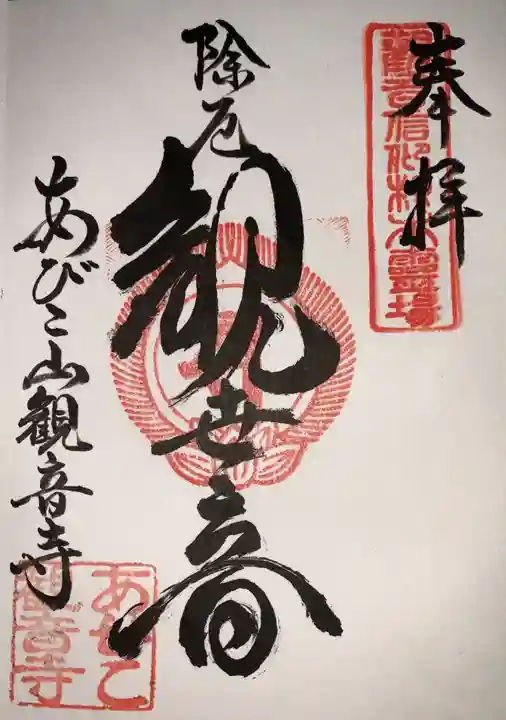 奉拝
観音信仰根本霊場
除厄
観世音
あびこ山観音寺
あびこ
観音寺